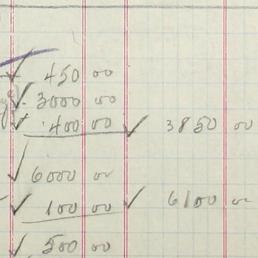 ✓ 450 00
✓ 3000 00
✓ 400 00 ✓ 3850 00
✓ 6000 00
✓ 100 00 ✓ 6100 00
✓ 500 00